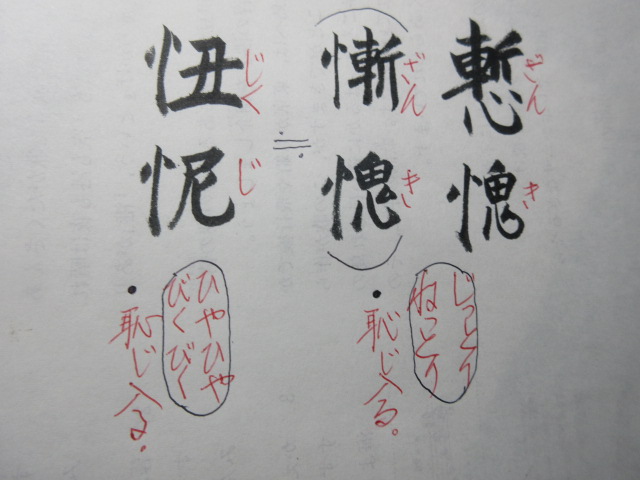 慙愧
ざんき
(慚愧)
ざんき
≒
忸怩
じくじ
じっとり
ねっとり
・恥じ入る。
ひやひや
びくびく
・恥じ入る。